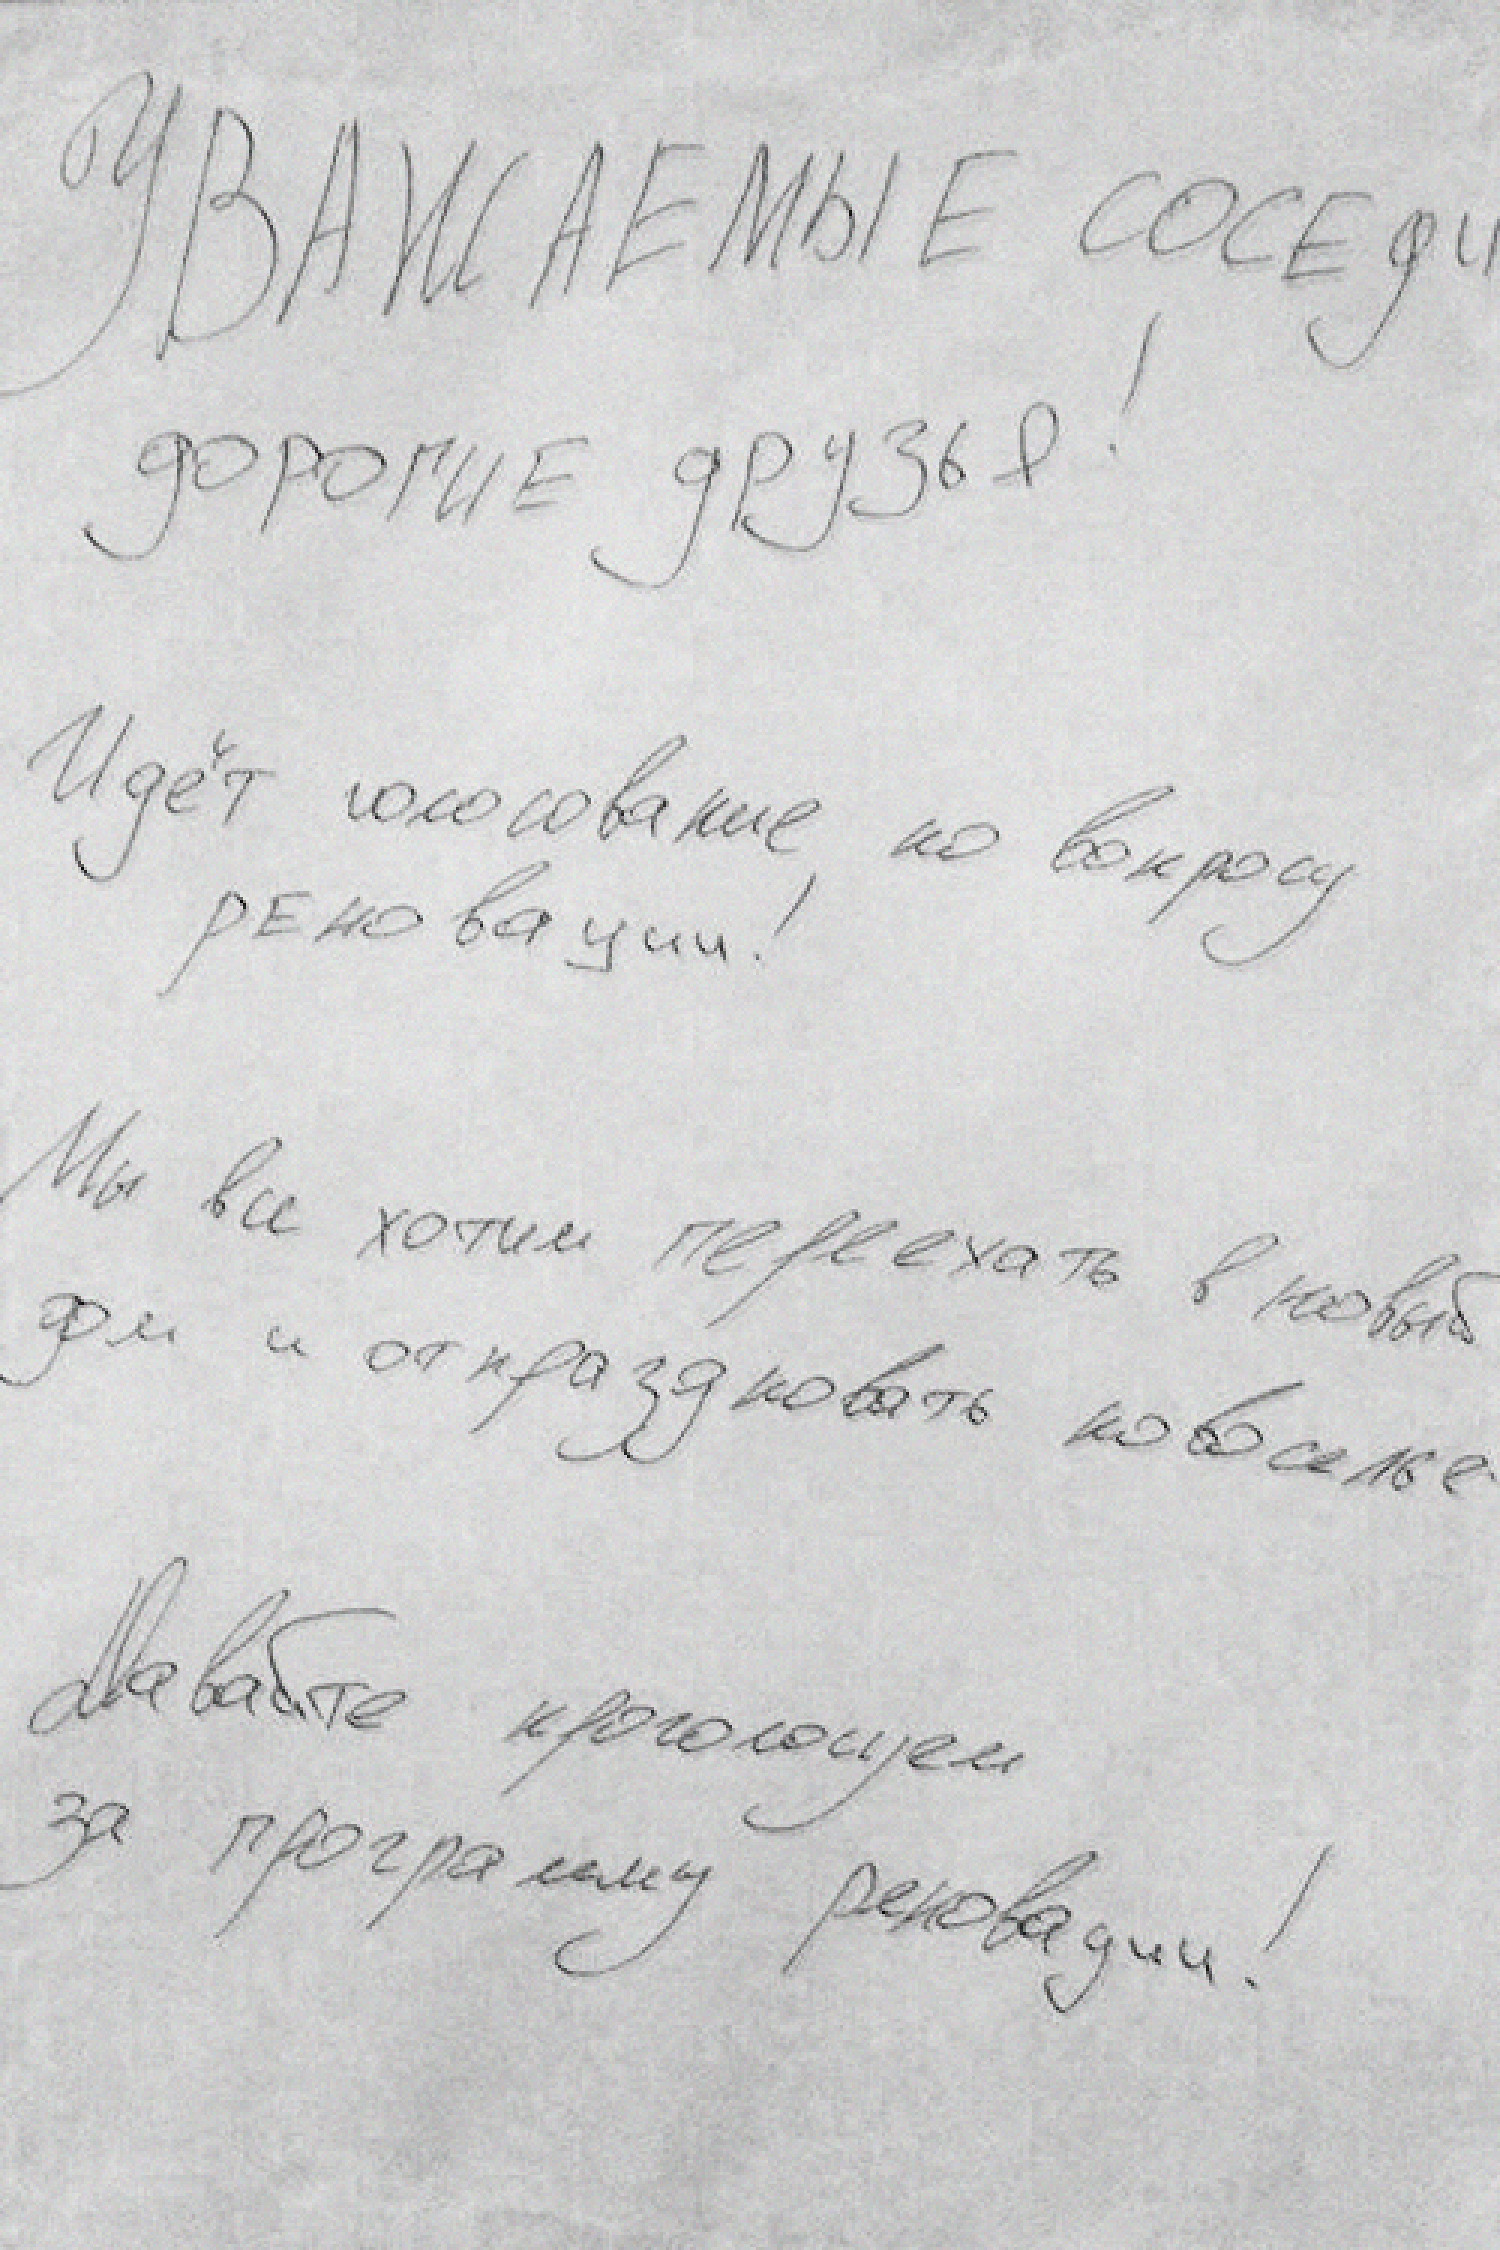 УВАЖАЕМЫЕ СОСЕДИ
ДОРОГИЕ ДРУЗЬЯ!
Идёт голосование по вопросу
реновации!
Мы все хотим переехать в новый
дом и отпраздновать новоселье
Давайте проголосуем
за программу реновации!